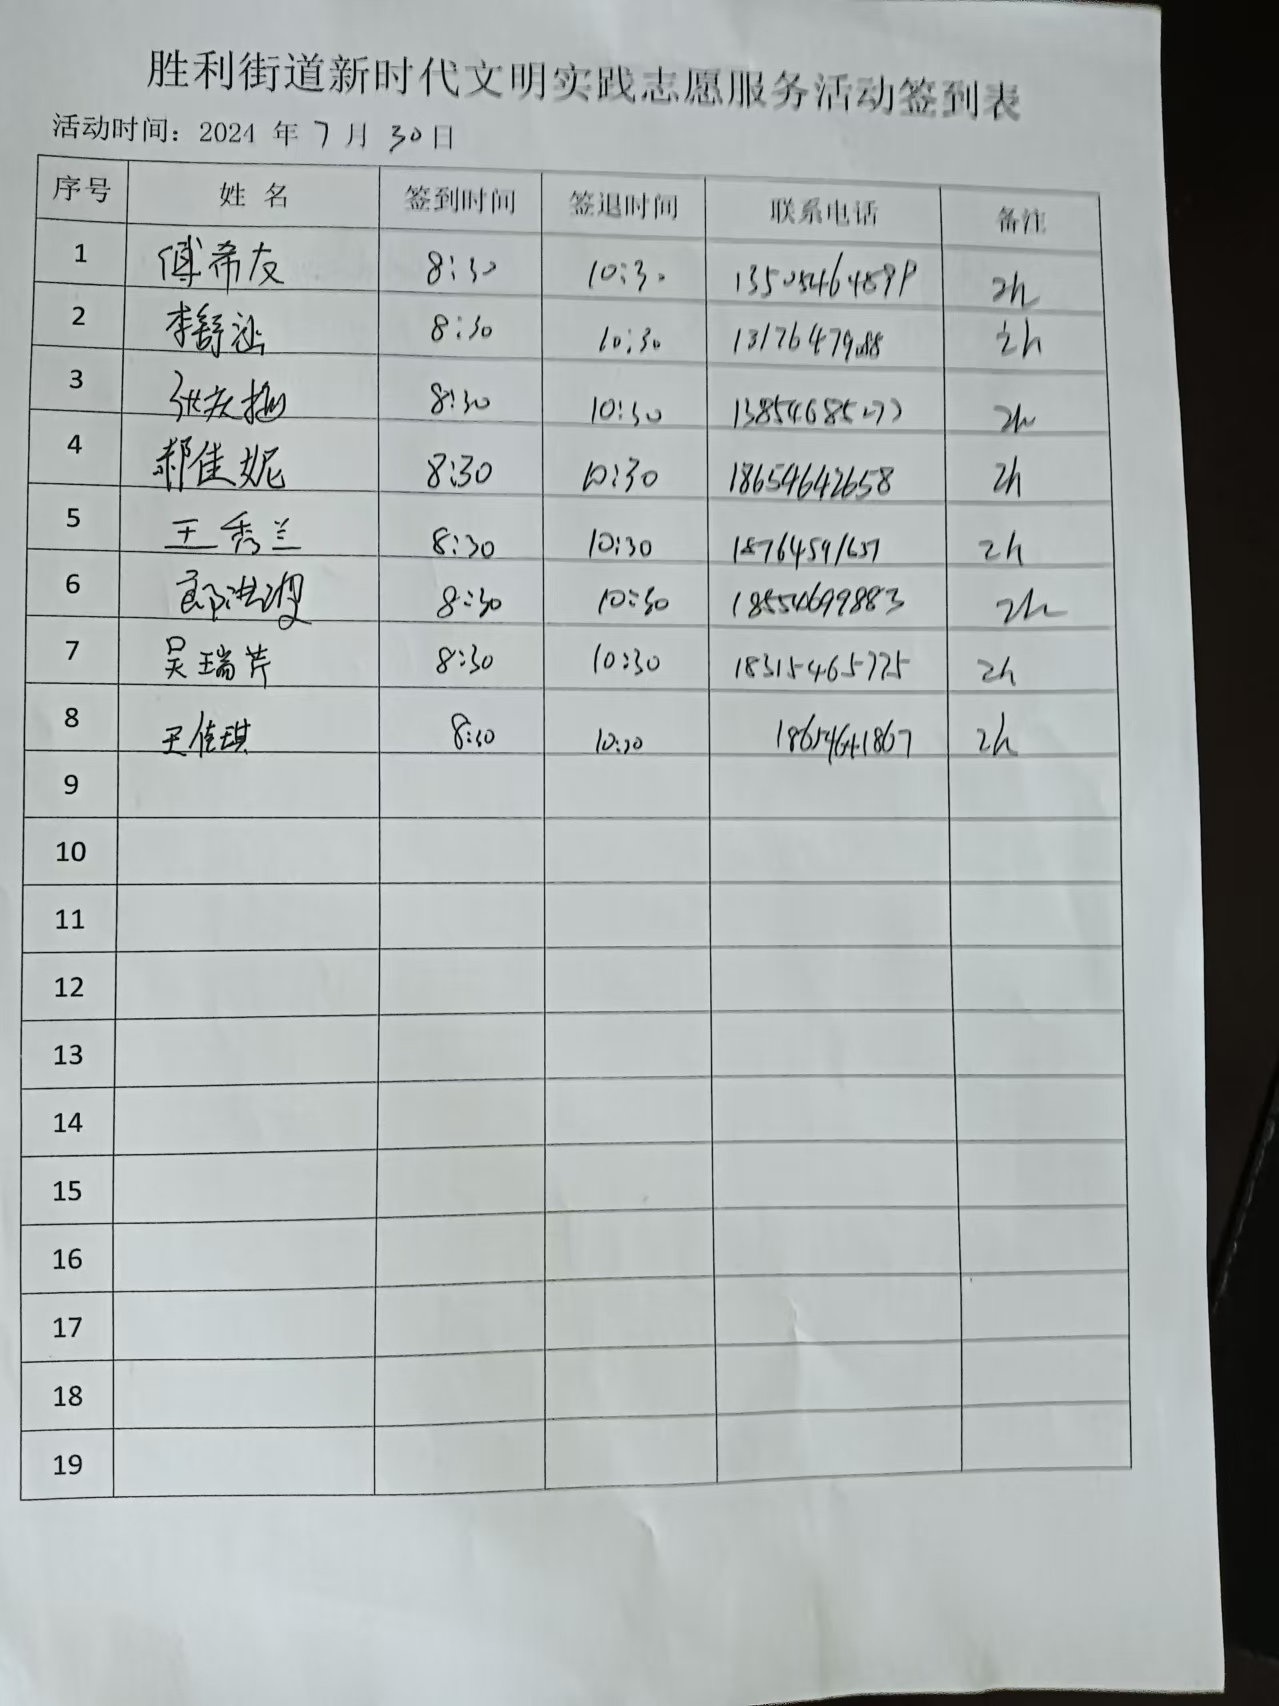 胜利街道新时代文明实践志愿服务活动签到表
活动时间：2024 年 7 月 30 日
序号 姓 名 签到时间 签退时间 联系电话 备注
1 傅希友 8:30 10:30 13505464899 2h
2 李舒涵 8:30 10:30 2h
3 8:30 10:30 2h
4 郝佳妮 8:30 10:30 18654642658 2h
5 王秀兰 8:30 10:30 18764591657 2h
6 8:30 10:30 18554699883 2h
7 吴瑞芹 8:30 10:30 18315465775 2h
8 王佳琪 8:30 10:30 2h
9
10
11
12
13
14
15
16
17
18
19